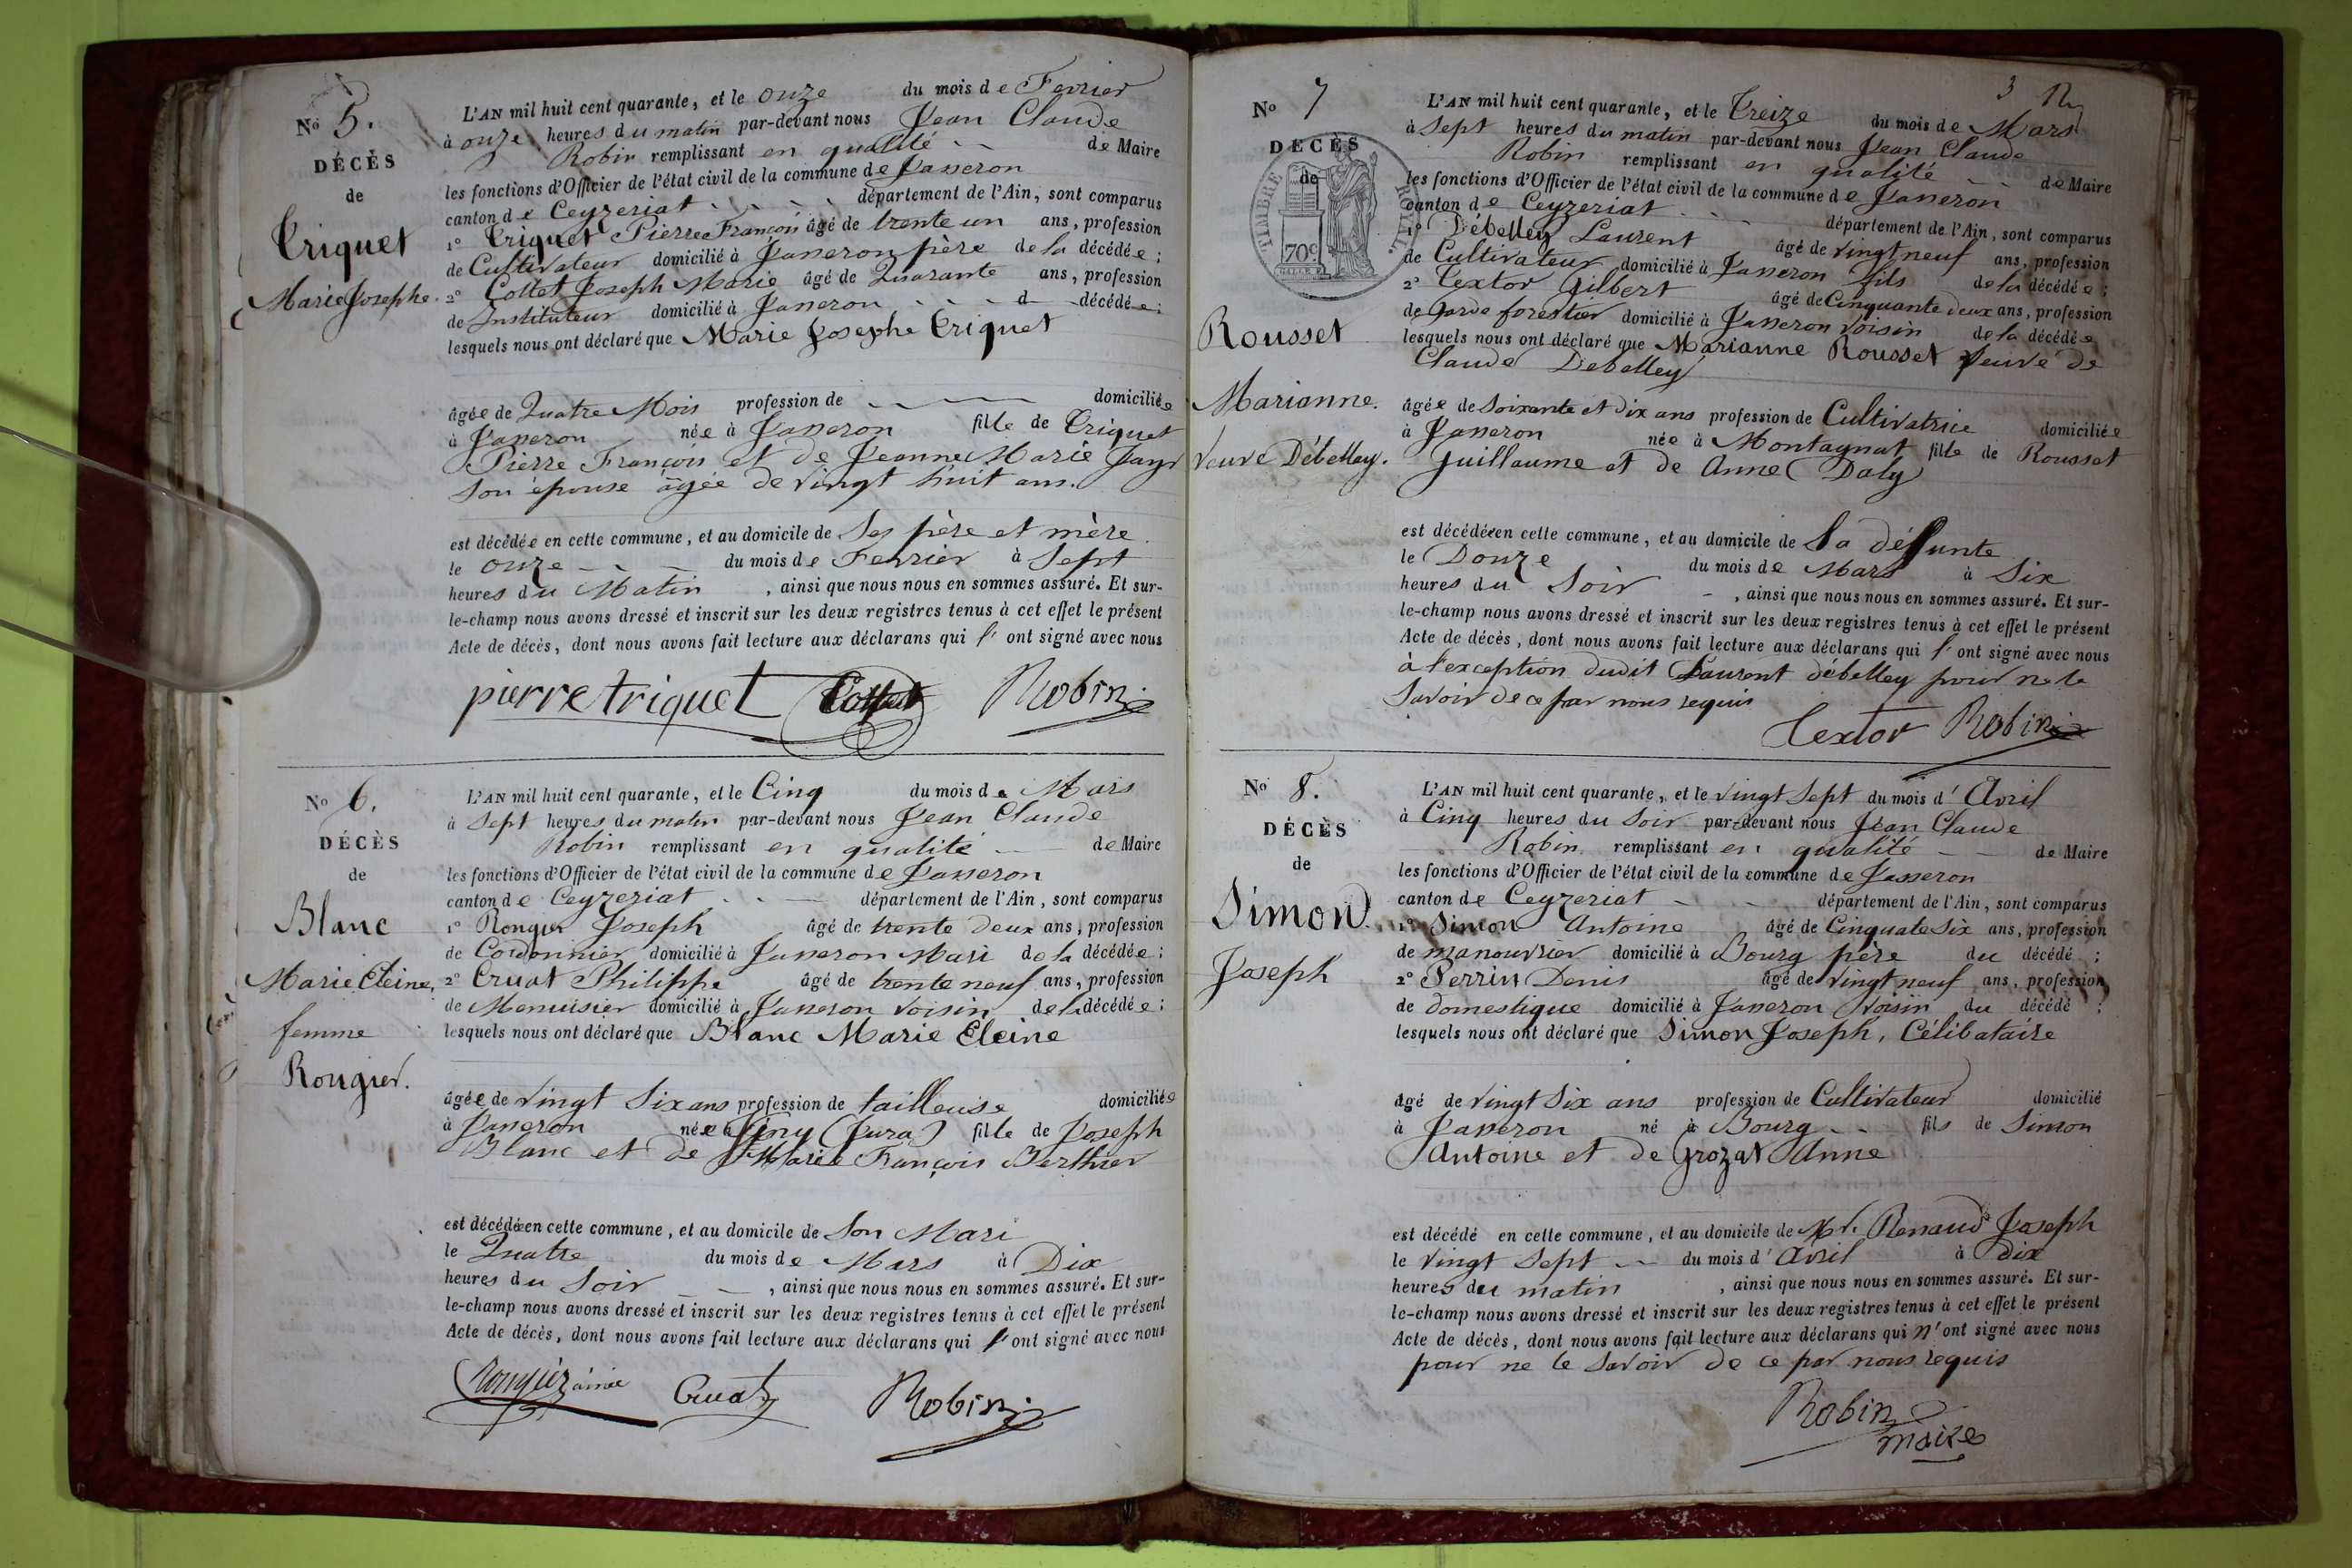 No 5.
DÉCÈS
de
Triquet
Marie Josephe.
L'AN mil huit cent quarante, et le onze du mois de Fevrier
à onze heures du matin par-devant nous Jean Claude
Robin remplissant en qualité de Maire
les fonctions d'Officier de l'état civil de la commune de Jasseron
canton de Ceyzeriat département de l'Ain, sont comparus
1° Triquet Pierre François âgé de trente un ans, profession
de Cultivateur domicilié à Jasseron père de la décédée;
2° Cottet Joseph Marie âgé de Quarante ans, profession
de Instituteur domicilié à Jasseron d décédée;
lesquels nous ont déclaré que Marie Josephe Triquet
âgée de Quatre Mois profession de domiciliée
à Jasseron née à Jasseron fille de Triquet
Pierre François et de Jeanne Marie Jayr
son épouse âgée de vingt huit ans.
est décédée en cette commune, et au domicile de Ses père et mère.
le onze du mois de Fevrier à Sept
heures du Matin, ainsi que nous nous en sommes assuré. Et sur-
le-champ nous avons dressé et inscrit sur les deux registres tenus à cet effet le présent
Acte de décès, dont nous avons fait lecture aux déclarans qui l'ont signé avec nous
pierre triquet Cottet Robin
No 6.
DÉCÈS
de
Blanc
Marie Eleine,
femme
Rougier.
L'AN mil huit cent quarante, et le Cinq du mois de Mars
à Sept heures du matin par-devant nous Jean Claude
Robin remplissant en qualité de Maire
les fonctions d'Officier de l'état civil de la commune de Jasseron
canton de Ceyzeriat département de l'Ain, sont comparus
1° Rougier Joseph âgé de trente deux ans, profession
de Cordonnier domicilié à Jasseron Mari de la décédée;
2° Cruat Philippe âgé de trente neuf ans, profession
de Menuisier domicilié à Jasseron voisin de la décédée;
lesquels nous ont déclaré que Blanc Marie Eleine
âgée de vingt Six ans profession de tailleuse domiciliée
à Jasseron née à Gigny (Jura) fille de Joseph
Blanc et de Marie François Berthier
est décédée en cette commune, et au domicile de Son Mari
le Quatre du mois de Mars à Dix
heures du Soir, ainsi que nous nous en sommes assuré. Et sur-
le-champ nous avons dressé et inscrit sur les deux registres tenus à cet effet le présent
Acte de décès, dont nous avons fait lecture aux déclarans qui l'ont signé avec nous
Rougier ainé Cruat Robin
3
No 7
DÉCÈS
de
TIMBRE ROYAL
70c
Rousset
Marianne.
Veuve Débelley.
L'AN mil huit cent quarante, et le Treize du mois de Mars
à Sept heures du matin par-devant nous Jean Claude
Robin remplissant en qualité de Maire
les fonctions d'Officier de l'état civil de la commune de Jasseron
canton de Ceyzeriat département de l'Ain, sont comparus
1° Débelley Laurent âgé de vingt neuf ans, profession
de Cultivateur domicilié à Jasseron fils de la décédée;
2° Textor Gilbert âgé de Cinquante deux ans, profession
de Garde forestier domicilié à Jasseron voisin de la décédée
lesquels nous ont déclaré que Marianne Rousset veuve de
Claude Debelley
âgée de soixante et Dix ans profession de Cultivatrice domiciliée
à Jasseron née à Montagnat fille de Rousset
Guillaume et de Anne Daly
est décédée en cette commune, et au domicile de la défunte
le Douze du mois de Mars à Six
heures du Soir, ainsi que nous nous en sommes assuré. Et sur-
le-champ nous avons dressé et inscrit sur les deux registres tenus à cet effet le présent
Acte de décès, dont nous avons fait lecture aux déclarans qui l'ont signé avec nous
à l'exception dudit Laurent débelley pour ne le
Savoir de ce par nous requis
Textor Robin
No 8.
DÉCÈS
de
Simon
Joseph
L'AN mil huit cent quarante, et le vingt Sept du mois d'Avril
à Cinq heures du Soir par-devant nous Jean Claude
Robin remplissant en qualité de Maire
les fonctions d'Officier de l'état civil de la commune de Jasseron
canton de Ceyzeriat département de l'Ain, sont comparus
1° Simon Antoine âgé de Cinquate Six ans, profession
de manouvrier domicilié à Bourg père du décédé;
2° Perrin Denis âgé de vingt neuf ans, profession
de domestique domicilié à Jasseron Voisin du décédé;
lesquels nous ont déclaré que Simon Joseph, Célibataire
âgé de vingt Six ans profession de Cultivateur domicilié
à Jasseron né à Bourg fils de Simon
Antoine et de Grozat Anne
est décédé en cette commune, et au domicile de Mr. Renaud Joseph
le vingt Sept du mois d'avril à Dix
heures du matin, ainsi que nous nous en sommes assuré. Et sur-
le-champ nous avons dressé et inscrit sur les deux registres tenus à cet effet le présent
Acte de décès, dont nous avons fait lecture aux déclarans qui n'ont signé avec nous
pour ne le Savoir de ce par nous requis
Robin
maire